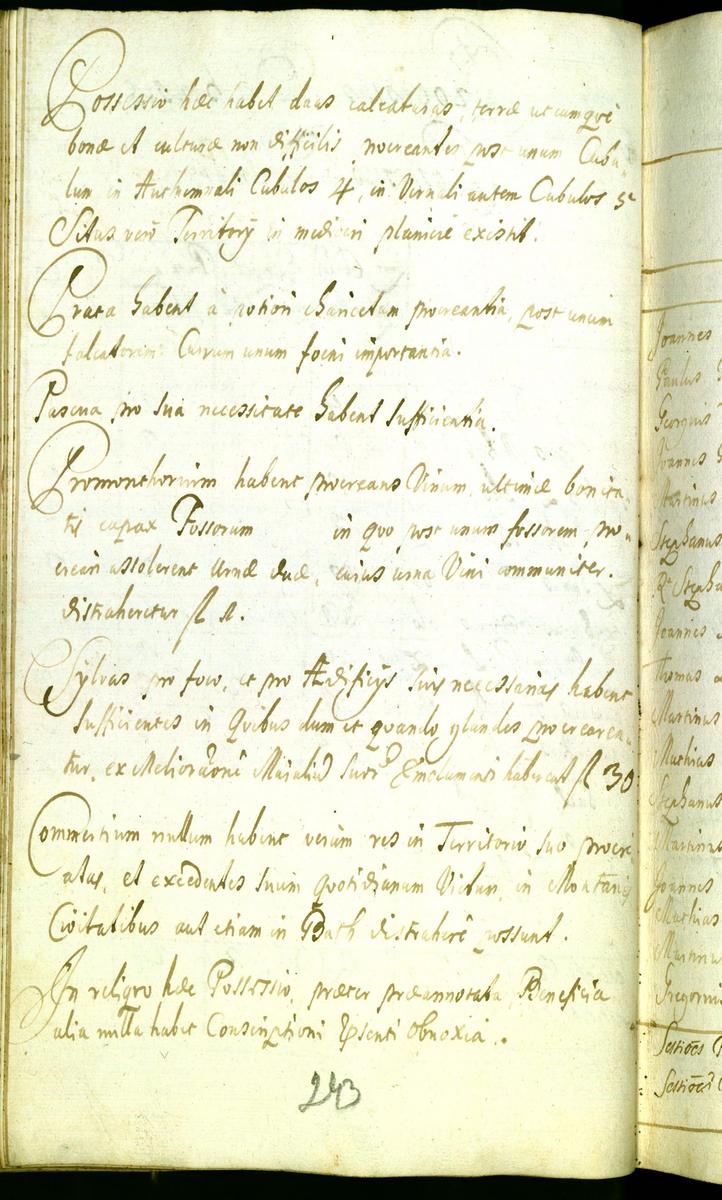 Possessio hæc habet duas calcaturas, terræ utcumque
bonæ et culturæ non difficilis, procreantes post unum Cubu-
lum in Authumnali Cubulos 4, in Vernali autem Cubulos 5
Situs vero Territorÿ in mediocri planicie existit.
Prata habent à potiori charicetum procreantia, post unum
falcatorem Currum unum foeni importantia.
Pascua pro sua necessitate habent sufficientia.
Promonthorium habent procreans Vinum, ultimæ bonita-
tis capax Fossorum in quo post unum fossorem, pro-
creari assolerent Urnæ duæ, cuius urna Vini communiter
distraheretur fl 1.
Sylvas pro foco, et pro Ædificÿs suis necessarias habent
sufficientes in Quibus dum et quando glandes procrearen-
tur, ex Emolumenti haberent fl 30
Commertium nullum habent verum res in Territorio suo procre
atas, et excedentes suum quotidianum Victum, in Montanis
Civitatibus aut etiam in Bath distrahere possunt.
In reliquo hæc Possessio, præter præannotata Beneficia
alia nulla habet Conscriptioni Obnoxia.
243
Joannes
Paulus
Georgius
Joannes
Martinus
Stephanus
Stepha
Joannes
Thomas
Martinus
Mathias
Stephanus
Martinus
Joannes
Mathias
Martinu
Gregorius